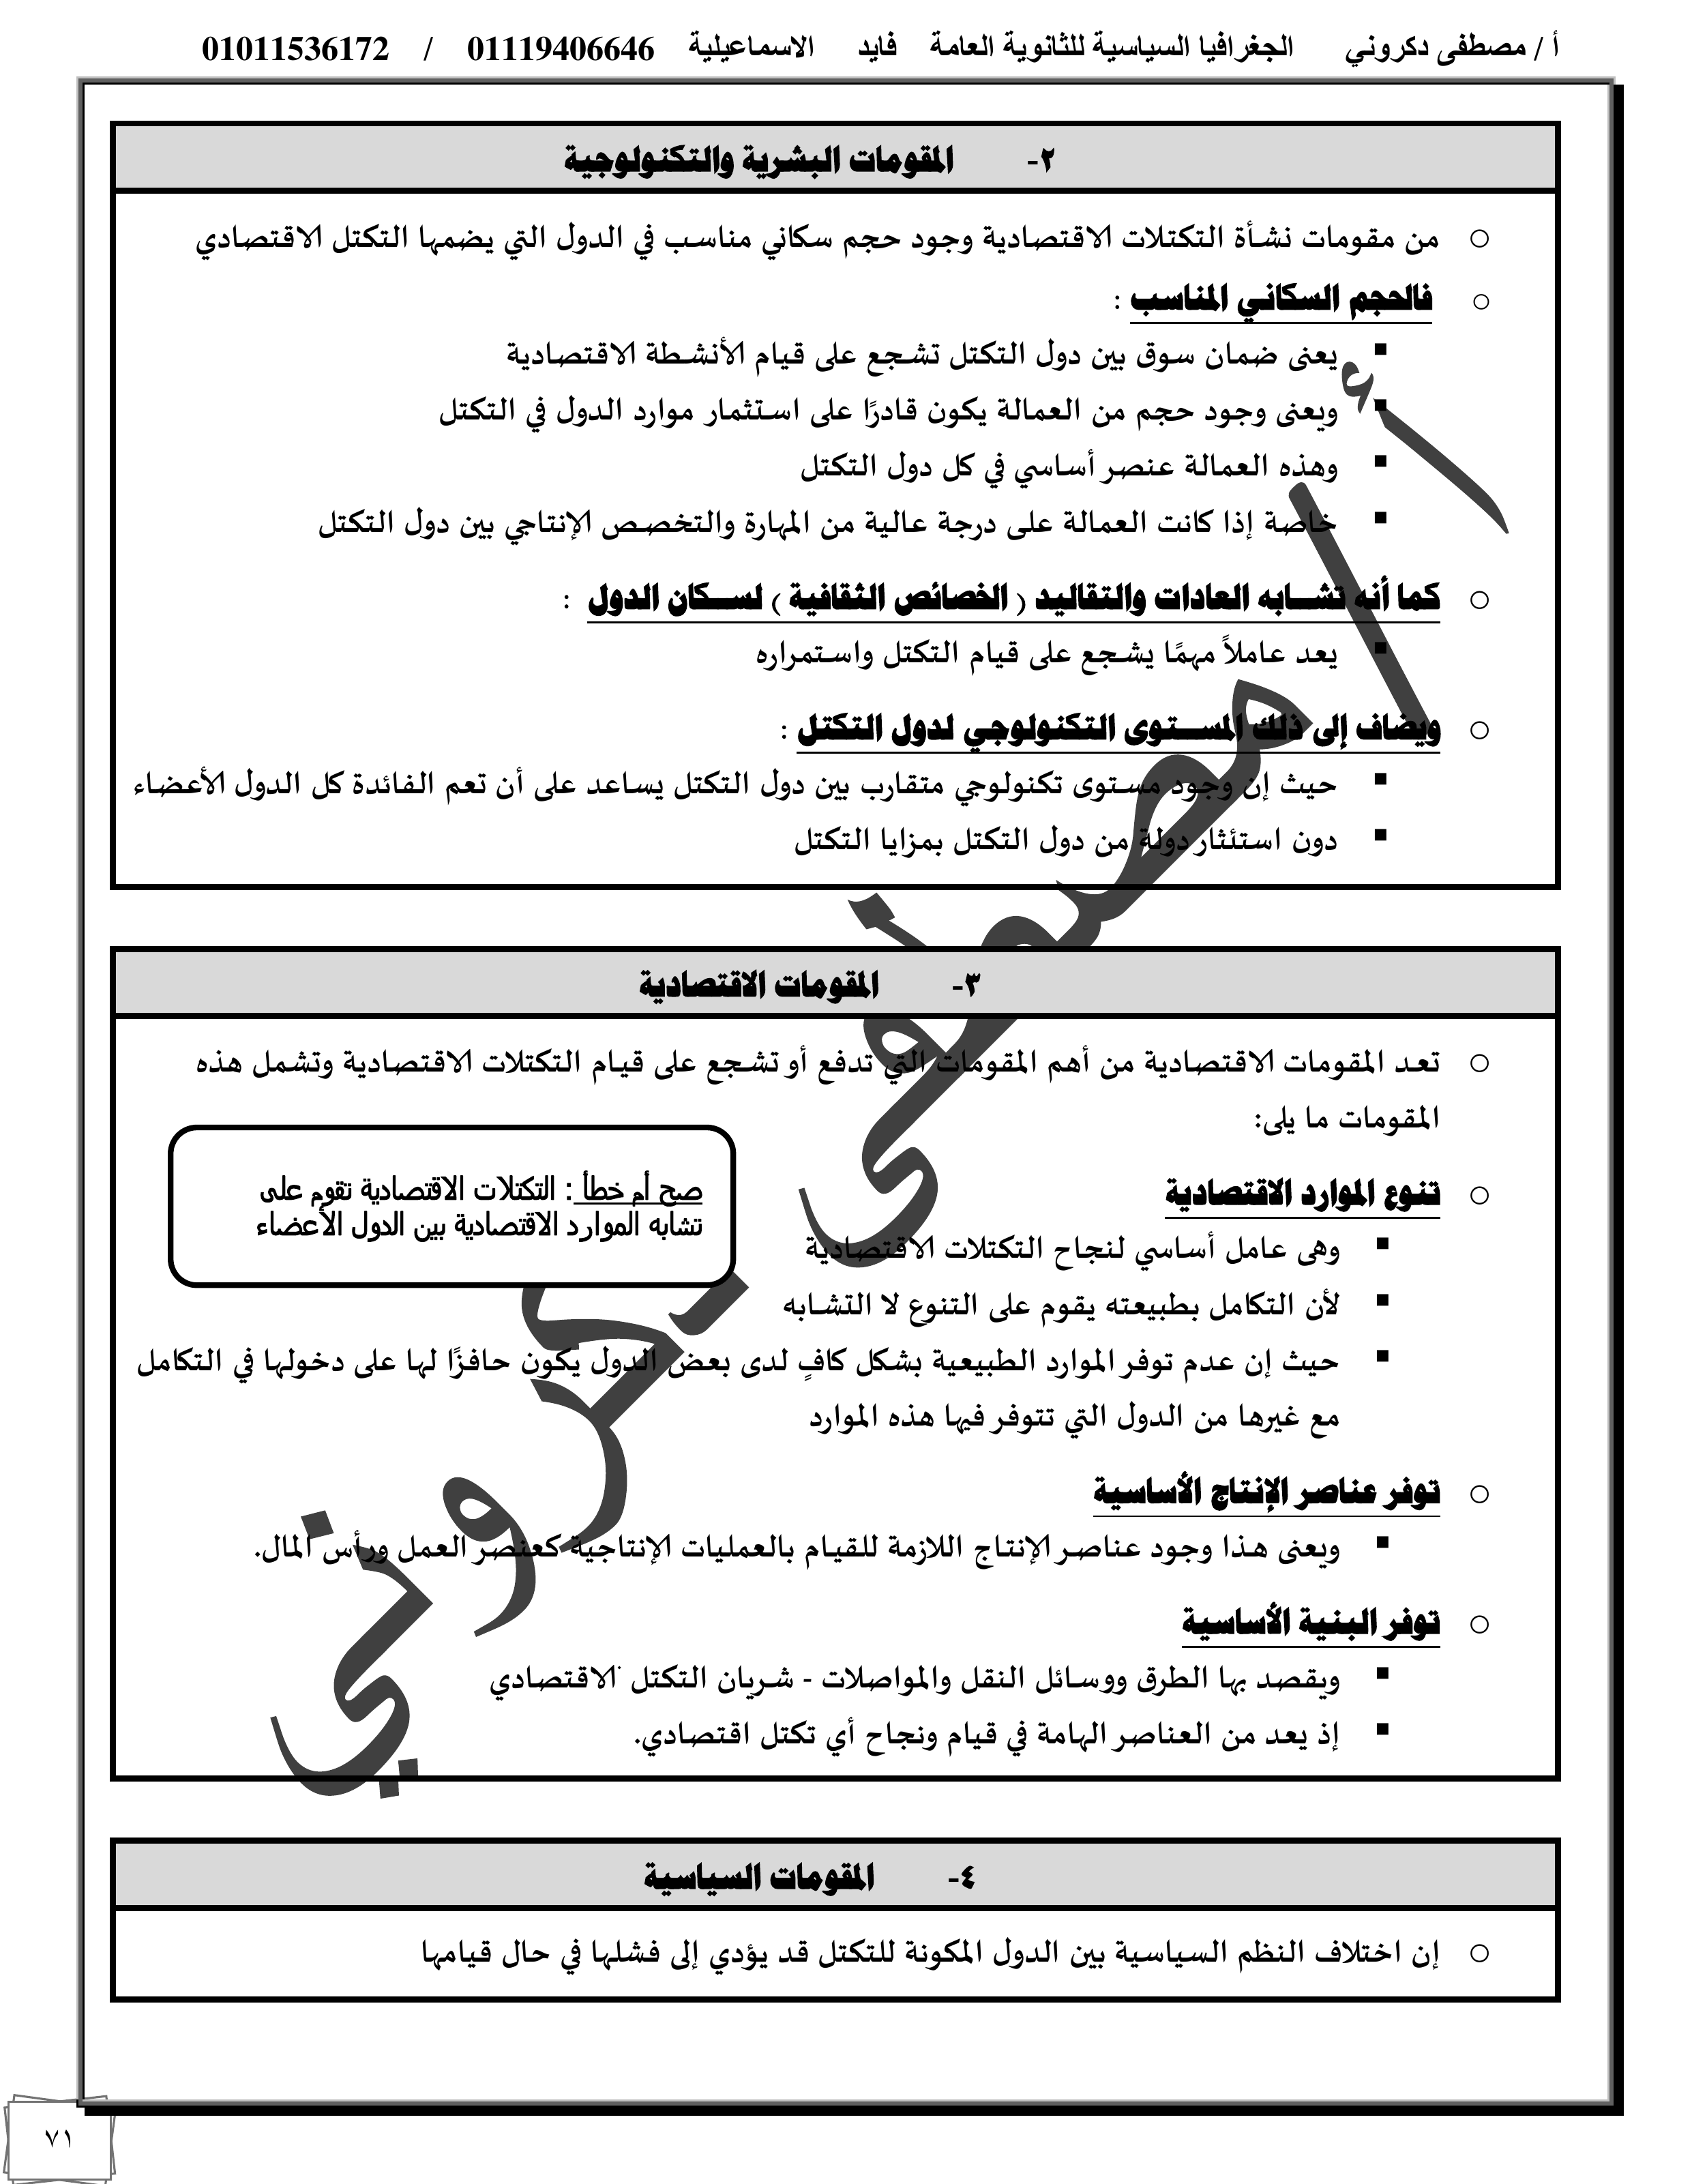 أ / مصطفى دكروني الجغرافيا السياسية للثانوية العامة فايد الاسماعيلية 01119406646 / 01011536172
٢- المقومات البشرية والتكنولوجية
○ من مقومات نشأة التكتلات الاقتصادية وجود حجم سكاني مناسب في الدول التي يضمها التكتل الاقتصادي
○ فالحجم السكاني المناسب :
▪ يعنى ضمان سوق بين دول التكتل تشجع على قيام الأنشطة الاقتصادية
▪ ويعنى وجود حجم من العمالة يكون قادرًا على استثمار موارد الدول في التكتل
▪ وهذه العمالة عنصر أساسي في كل دول التكتل
▪ خاصة إذا كانت العمالة على درجة عالية من المهارة والتخصص الإنتاجي بين دول التكتل
○ كما أنه تشابه العادات والتقاليد ( الخصائص الثقافية ) لسكان الدول :
▪ يعد عاملاً مهمًا يشجع على قيام التكتل واستمراره
○ ويضاف إلى ذلك المستوى التكنولوجي لدول التكتل :
▪ حيث إن وجود مستوى تكنولوجي متقارب بين دول التكتل يساعد على أن تعم الفائدة كل الدول الأعضاء
▪ دون استئثار دولة من دول التكتل بمزايا التكتل
٣- المقومات الاقتصادية
○ تعد المقومات الاقتصادية من أهم المقومات التي تدفع أو تشجع على قيام التكتلات الاقتصادية وتشمل هذه
المقومات ما يلى:
○ تنوع الموارد الاقتصادية
صح أم خطأ : التكتلات الاقتصادية تقوم على
تشابه الموارد الاقتصادية بين الدول الأعضاء
▪ وهى عامل أساسي لنجاح التكتلات الاقتصادية
▪ لأن التكامل بطبيعته يقوم على التنوع لا التشابه
▪ حيث إن عدم توفر الموارد الطبيعية بشكل كافٍ لدى بعض الدول يكون حافزًا لها على دخولها في التكامل
مع غيرها من الدول التي تتوفر فيها هذه الموارد
○ توفر عناصر الإنتاج الأساسية
▪ ويعنى هذا وجود عناصر الإنتاج اللازمة للقيام بالعمليات الإنتاجية كعنصر العمل ورأس المال.
○ توفر البنية الأساسية
▪ ويقصد بها الطرق ووسائل النقل والمواصلات - شريان التكتل الاقتصادي
▪ إذ يعد من العناصر الهامة في قيام ونجاح أي تكتل اقتصادي.
٤- المقومات السياسية
○ إن اختلاف النظم السياسية بين الدول المكونة للتكتل قد يؤدي إلى فشلها في حال قيامها
أ / مصطفى دكروني
٧١